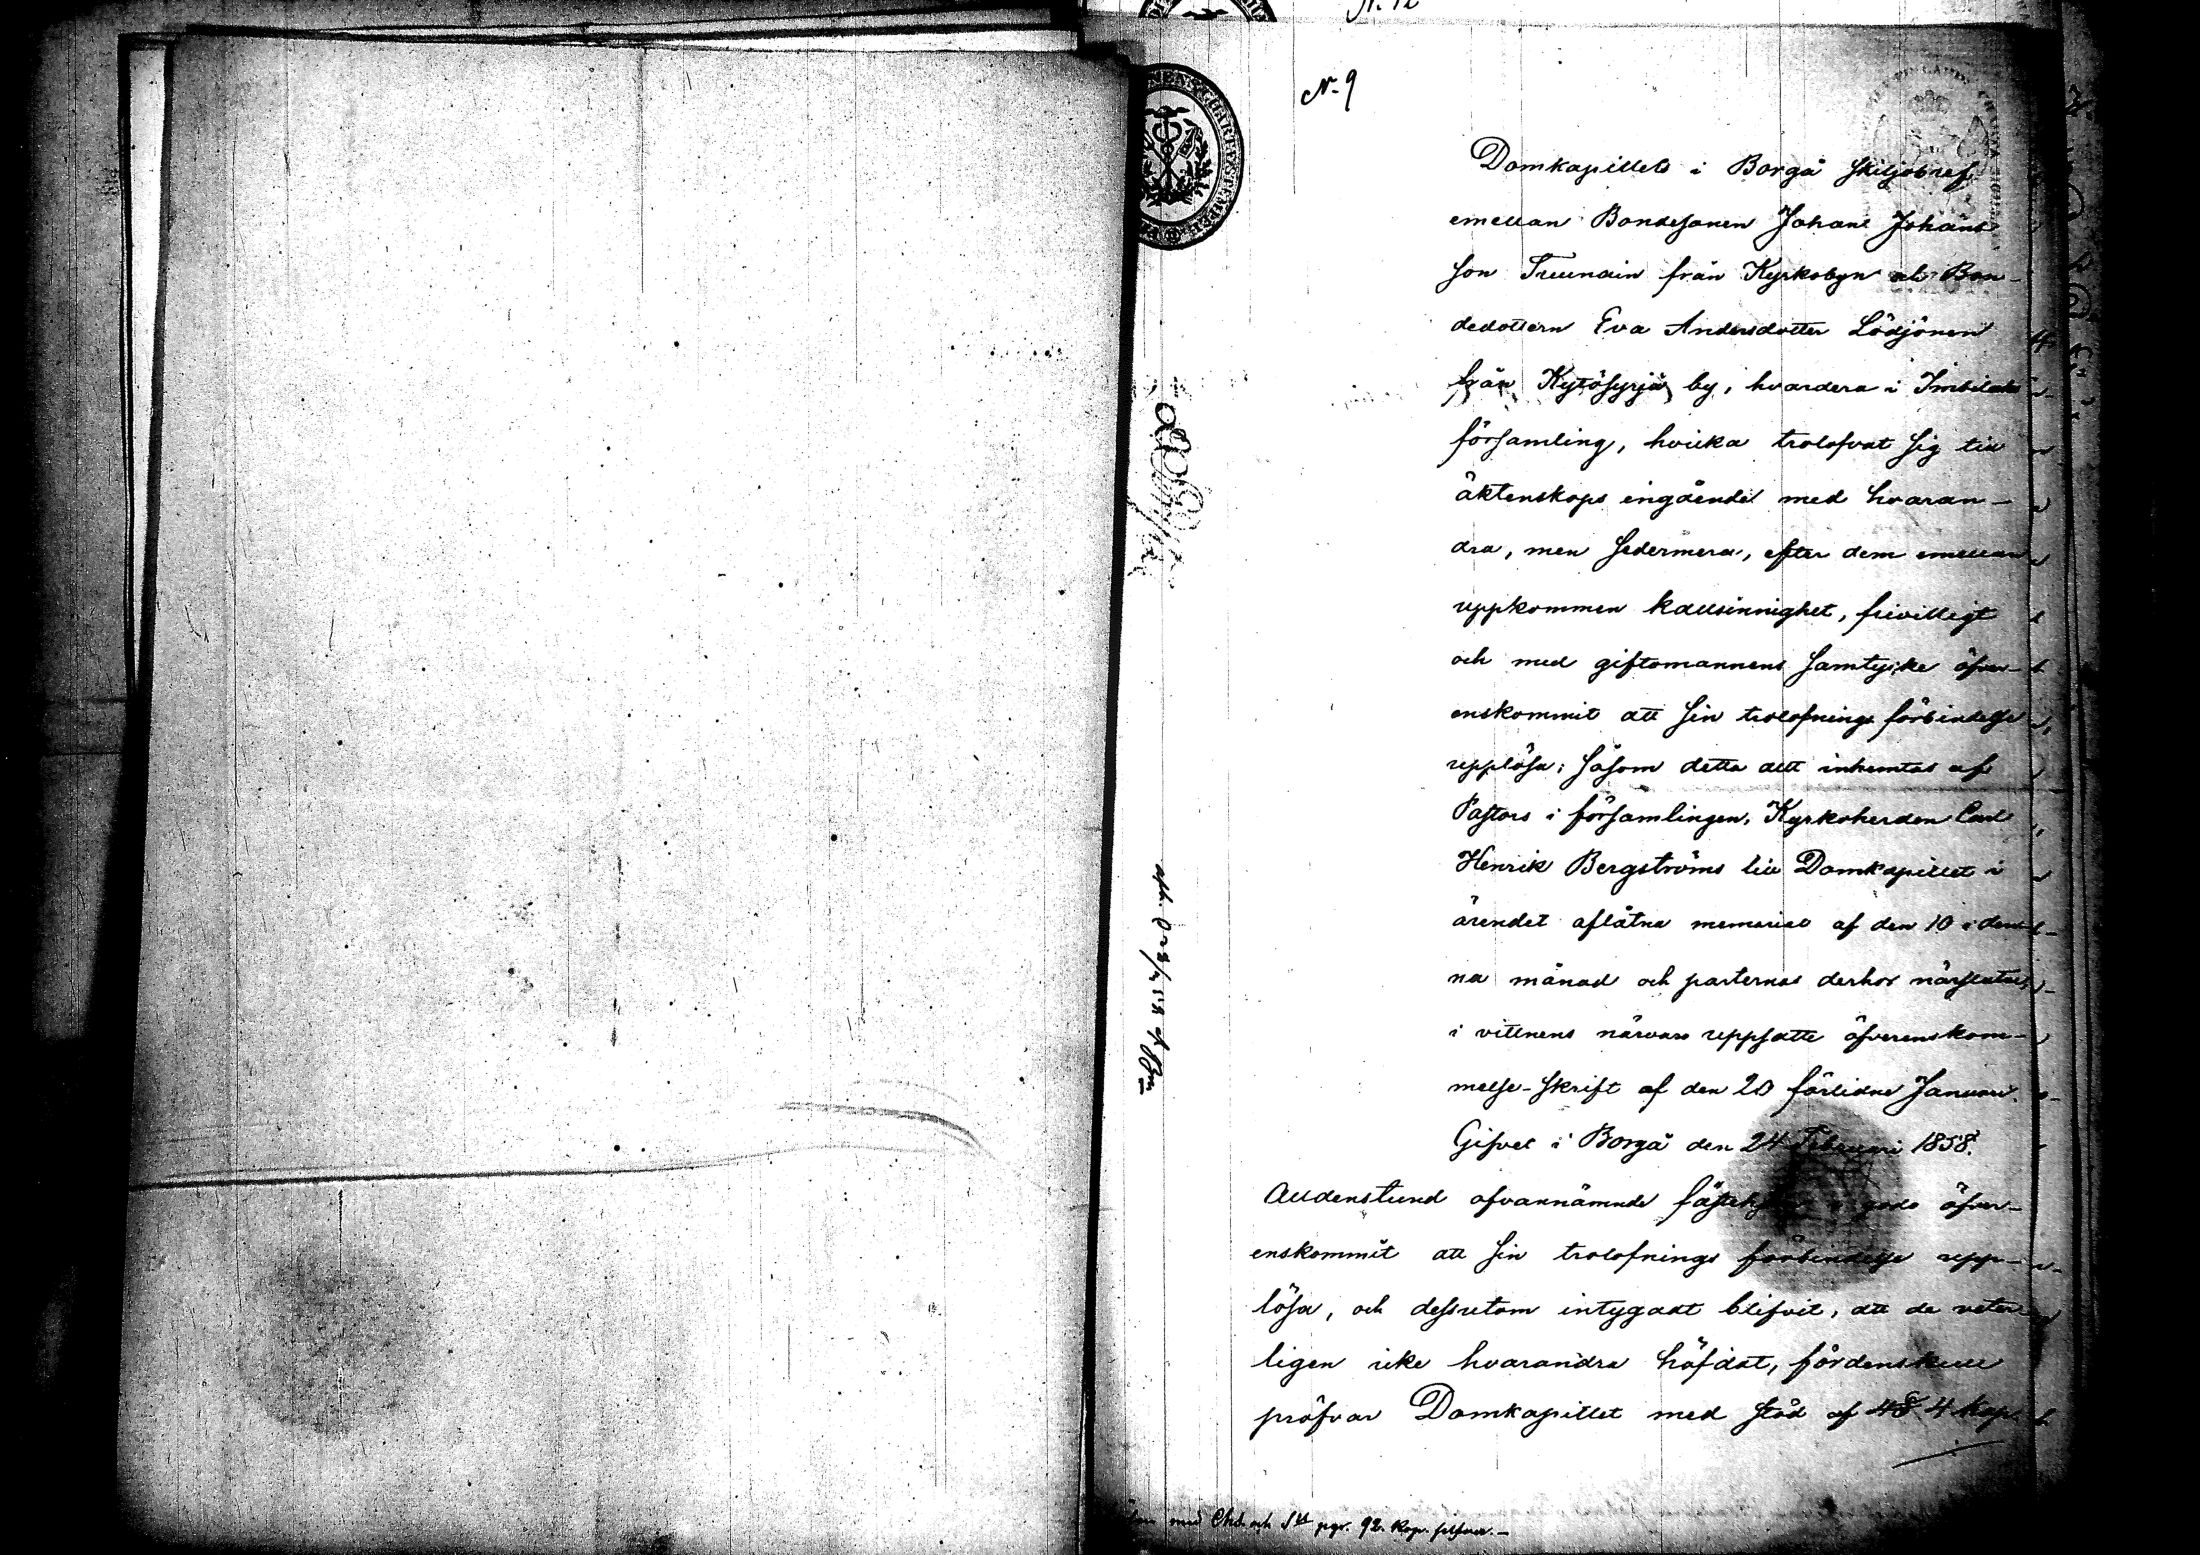 N. 12
N. 9
Domkapillets i Borgå skiljobref
emellan Bondesonen Johan Johans
son Truunain från Kyrkobyn ch Bon-
dedottern Eva Andersdotter Lödjönen
från Kytösyrjä by, hvardera i Imbilaks
församling, hvilka trolofvat sig till
äktenskaps ingående med hvaran-
dra, men sedermera, efter dem emellan
uppkommen kallsinnighet, frivilligt
och med giftomannens samtycke öfver-
enskommit att sin trolofnings förbindelse
upplösa; såsom detta allt inhemtas af
Pastors i församlingen, Kyrkoherden Carl
Henrik Bergströms till Domkapillet i
ärendet aflåtna memorial af den 10 i den-
na månad och parternas derhos närslutna,
i vittnens närvaro uppsatte öfverenskom-
melse-skrift af den 20 förlidne Januari.
Gifvet i Borgå den 24 Februari 1858.
Alldenstund ofvannämnde i godo öfver-
enskommit att sin trolofnings förbindelse upp-
lösa, och dessutom intygadt blifvit, att de veter-
ligen icke hvarandra häfdat, fördenskull
pröfvar Domkapillet med stöd af 4 § 4 Kap.
med Chd. och Stt pgr. 92. Kop. silfver.-